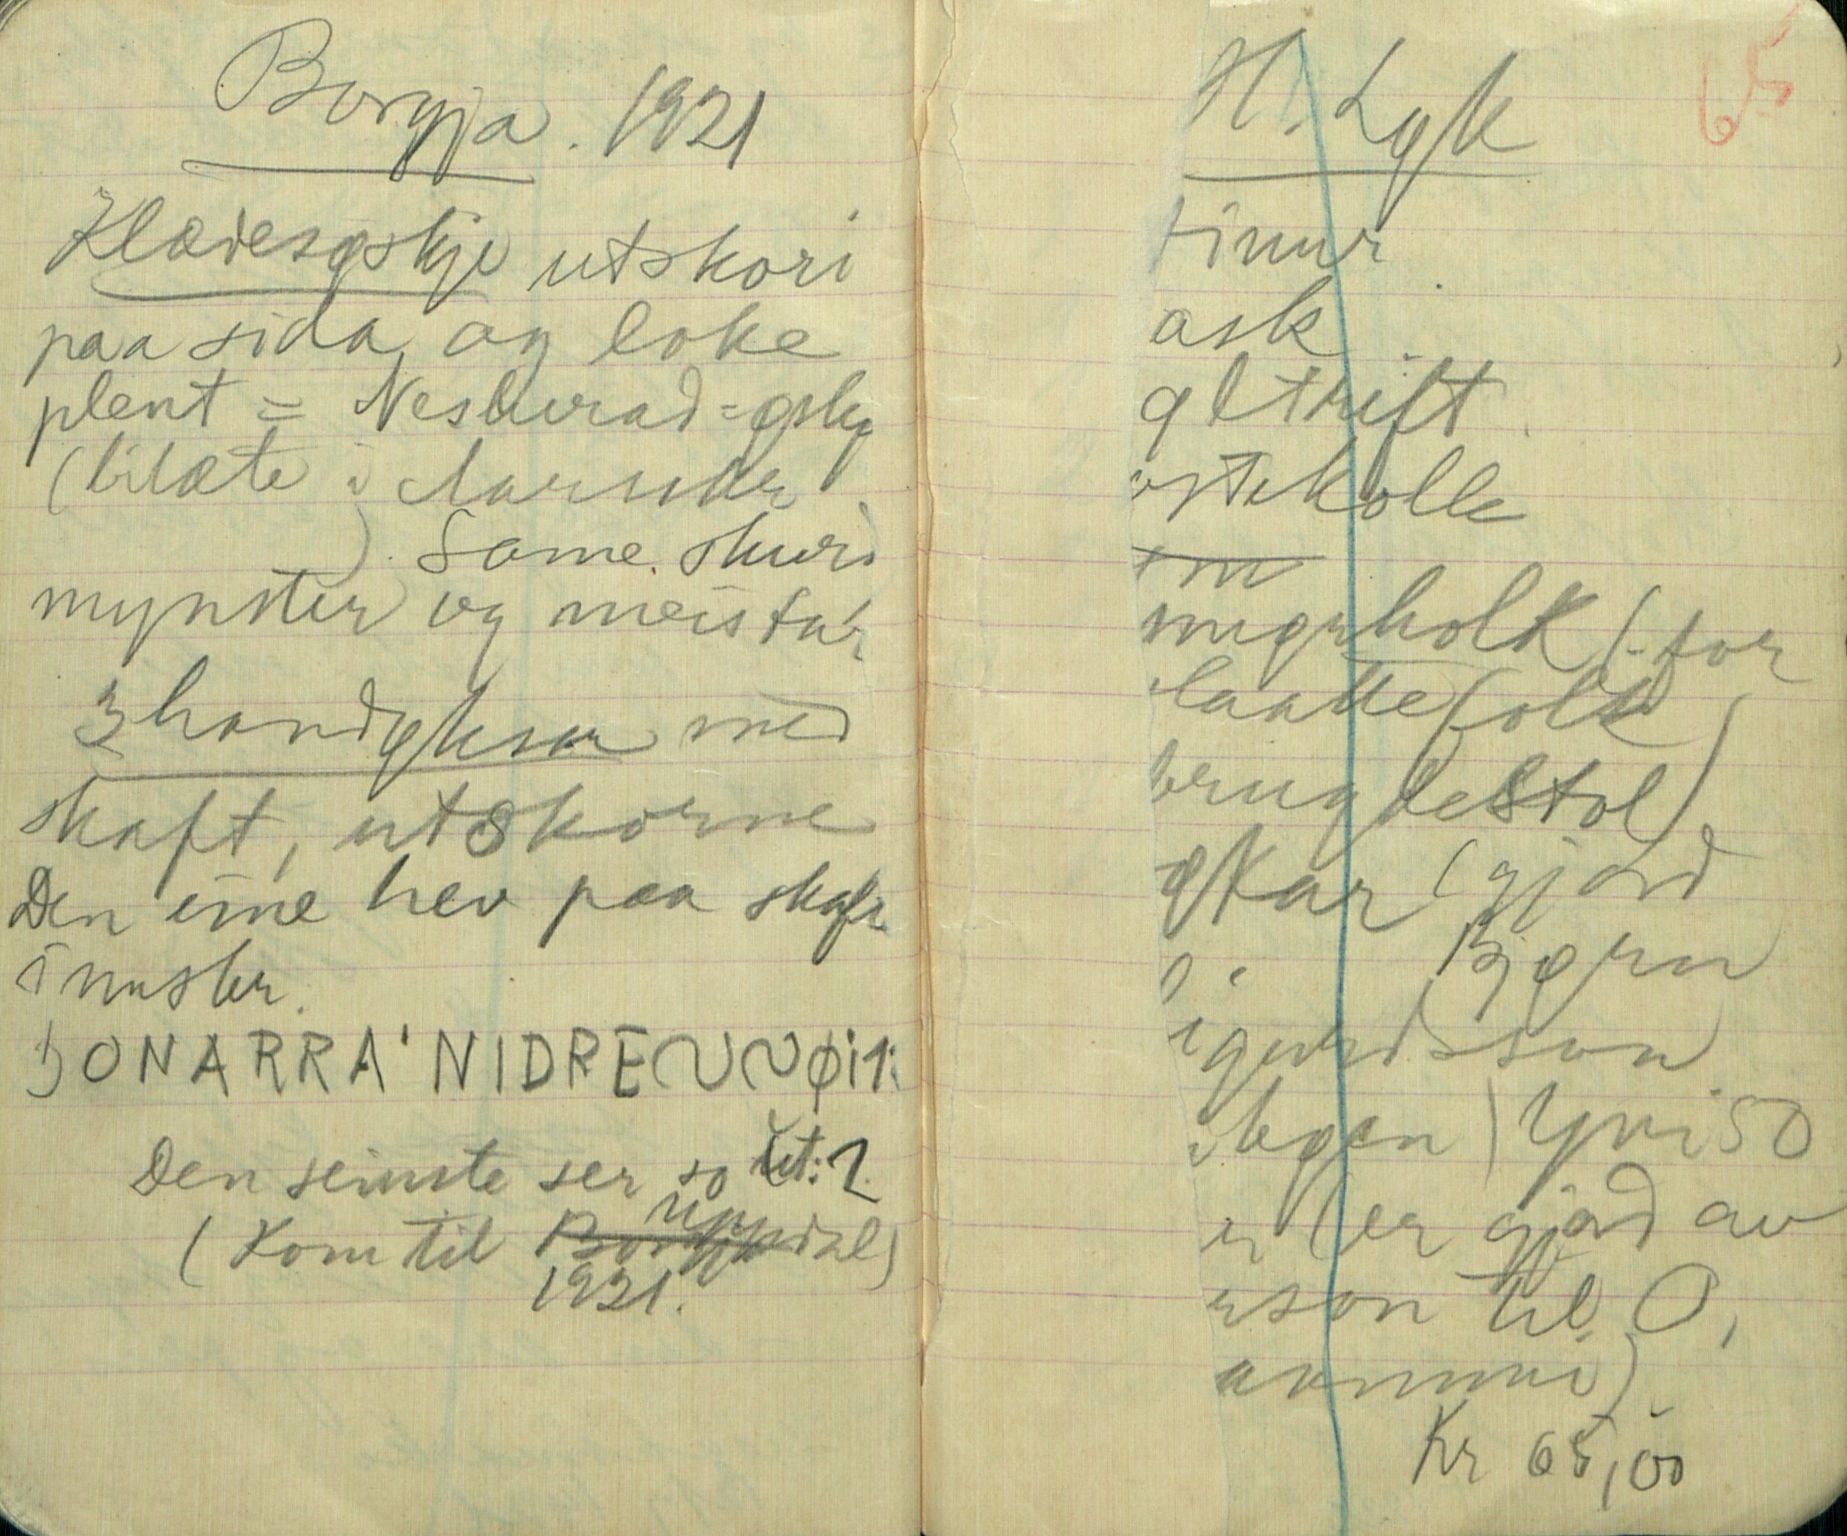 Borgja. 1921
Klædesøskje utskori
paa sida og loke
plent = Nesherad-øsky
(bilæte i
). Same skurd
mynster og meistar
3 handøksar med
skaft, utskorne
Den eine hev paa skaft
innsker.
JONARRA'NIDRE
Den seinste ser so ut: 2
(Kom til Borgja Uppdal)
1921.
65
H. Løk
tinur
ask
øltrift
ostekolle
smørholk (for
slaattefolk)
brugdestol
økar (gjord
Bjørn
igurdsson
bøen) Yvi 50
er (er gjord av
son til O,
Kr 65,00